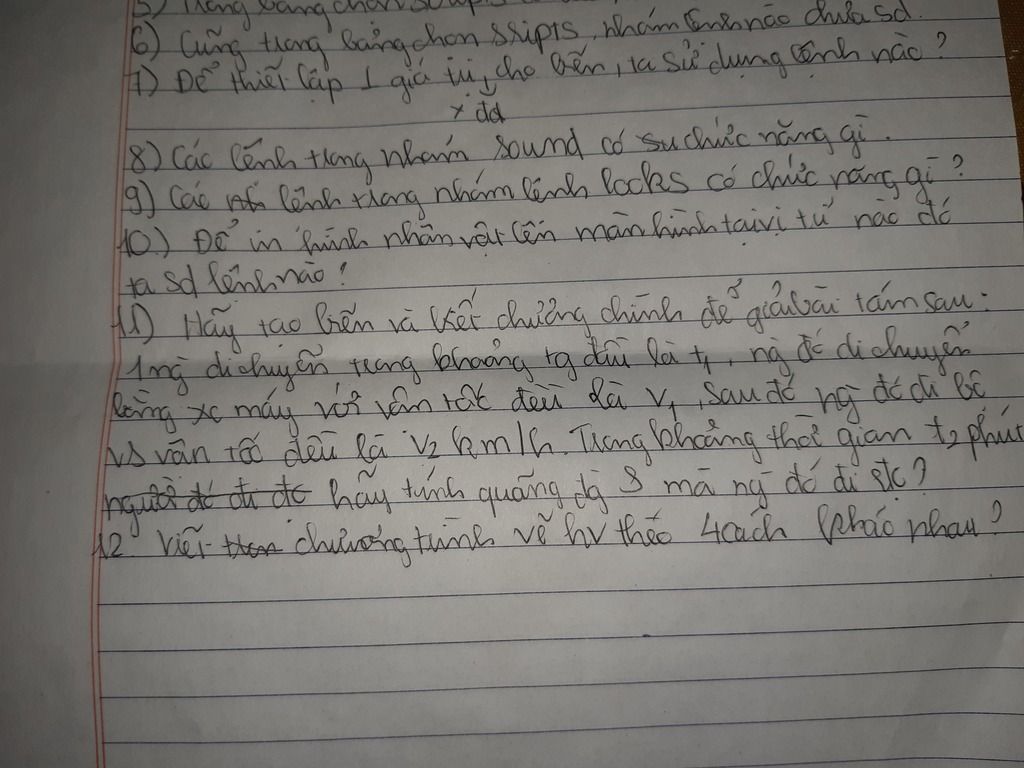 5) Trong bảng chọn scripts
6) Cũng trong bảng chọn ssipts, nhóm lệnh nào chưa sd.
7) Để thiết lập 1 giá trị, cho biến, ta sử dụng lệnh nào?
x đd
8) Các lệnh trong nhóm sound có sư chức năng gì.
9) Các nh lệnh trong nhóm lệnh looks có chức năng gì?
10) Để in hình nhân vật lên màn hình tại vị trí nào đó
ta sd lệnh nào?
11) Hãy tạo biến và viết chương chình để giải bài tóm sau:
1 ng di chuyển trong khoảng tg đầu là t1, ng đó di chuyển
bằng xe máy với vân tốc đều là v1, sau đó ng đó đi bộ
vs vân tốc đều là v2 km/h. Trong khoảng thời gian t2 phút
người đó đi đc hãy tính quãng đg S mà ng đó đi đc?
12 Viết tron chương trình vẽ hv theo 4 cách khác nhau?